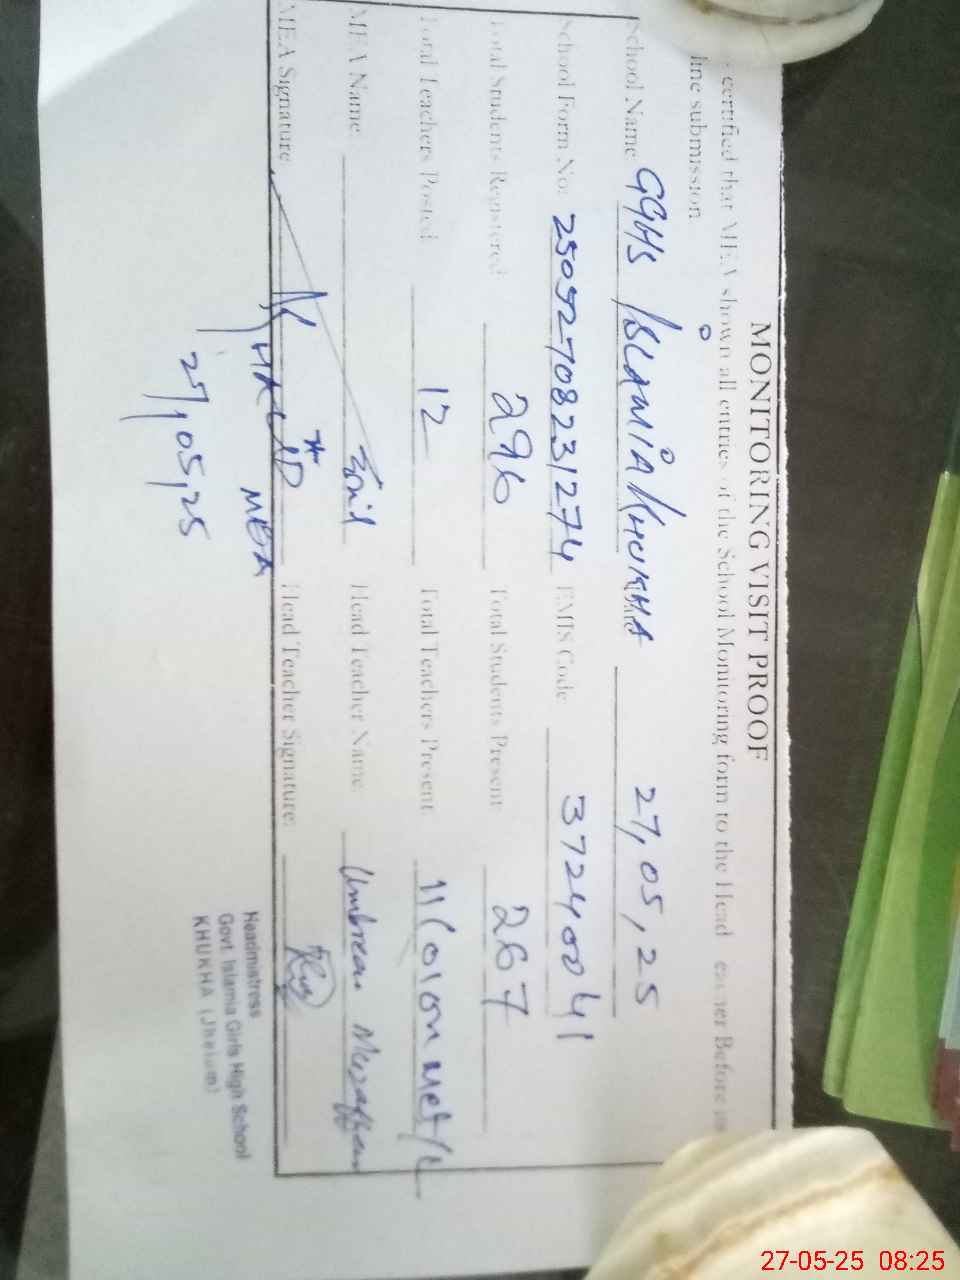 MONITORING VISIT PROOF
certified that MEA shown all entries of the School Monitoring form to the Head eacher Before
line submission
School Name: GGHS ISLAMIA KHUKHA 27,05,25
School Form No: 25052708231274 EMIS Code 37240041
Total Students Registered 296 Total Students Present: 267
Total Teachers Posted 12 Total Teachers Present: 11 (01 on Met/L
MEA Name: Head Teacher Name: Umbreen Muzaffar
MEA Signature: Head Teacher Signature:
MEA
27,05,25
Headmistress
Govt. Islamia Girls High School
KHUKHA (Jhelum)
27-05-25 08:25